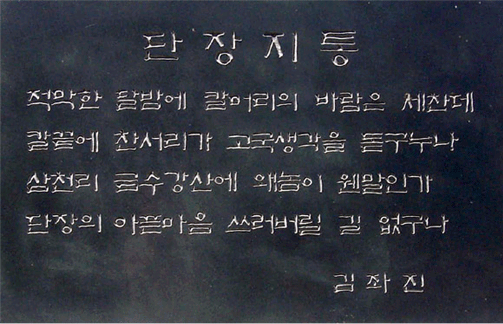 단장지통
적막한 달밤에 칼머리의 바람은 세찬데
칼끝에 찬서리가 고국생각을 돋구누나
삼천리 금수강산에 왜놈이 웬말인가
단장의 아픈마음 쓰러버릴 길 없구나
김좌진